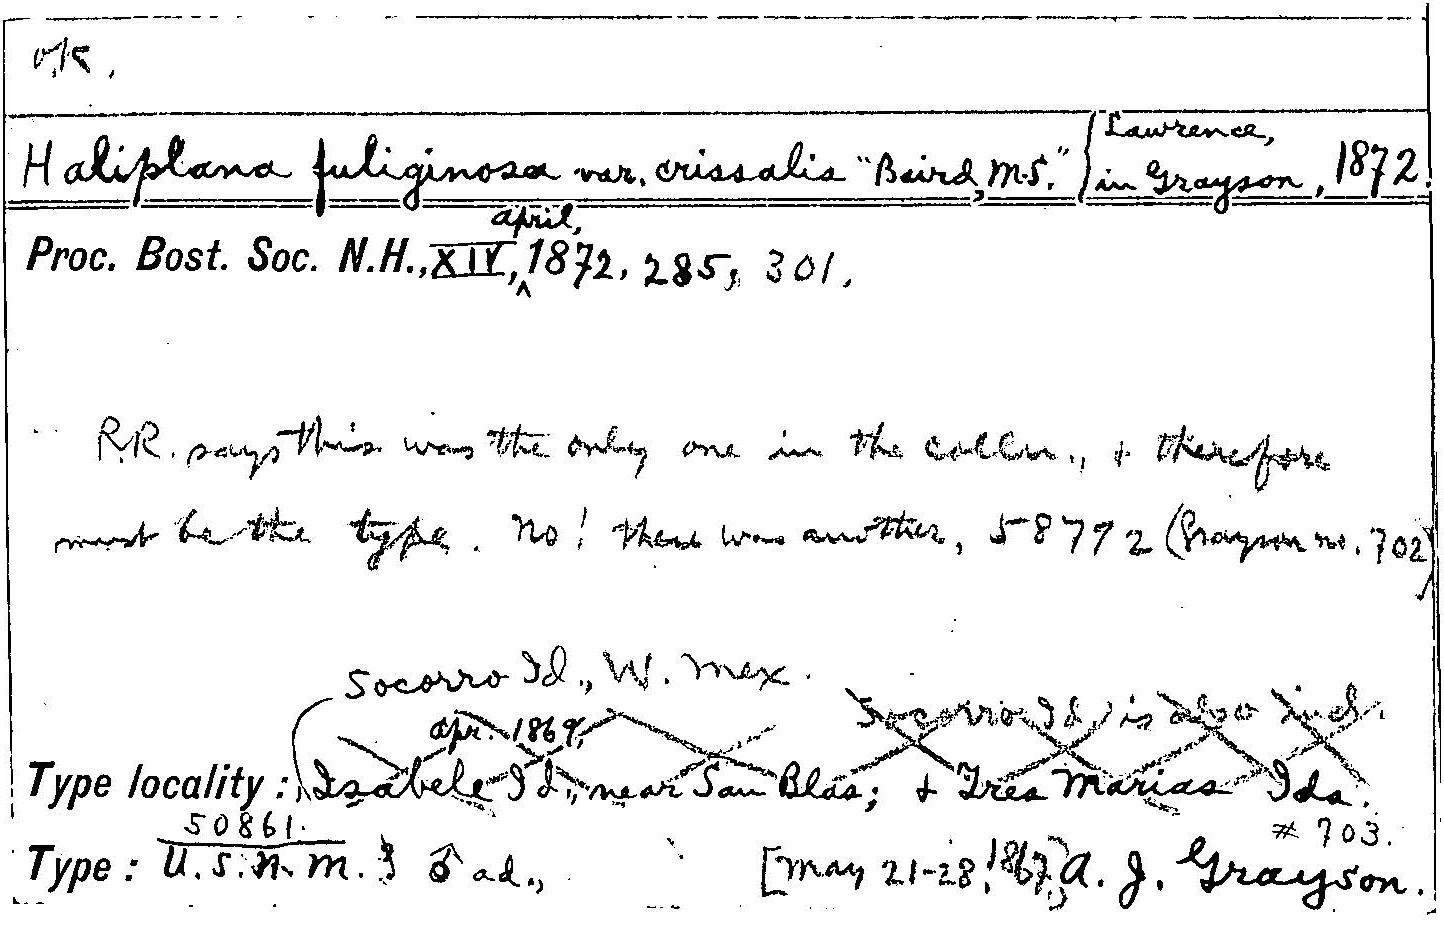 O.K.
Haliplana fuliginosa var. crissalis "Baird, MS." { Lawrence, in Grayson, 1872.
April,
Proc. Bost. Soc. N.H., XIV, ^ 1872, 285; 301.
R.R. says this was the only one in the colln., + therefore
must be the type. No! there was another, 58792 (Grayson no. 702)
Socorro Id., W. Mex.
Socorro Id. is also incl.
Apr. 1869,
Type locality: Isabele Id., near San Blas; + Tres Marias Ids.
50861. # 703.
Type: U.S.N.M. } ♂ ad., [May 21-28, 1867,] A. J. Grayson.